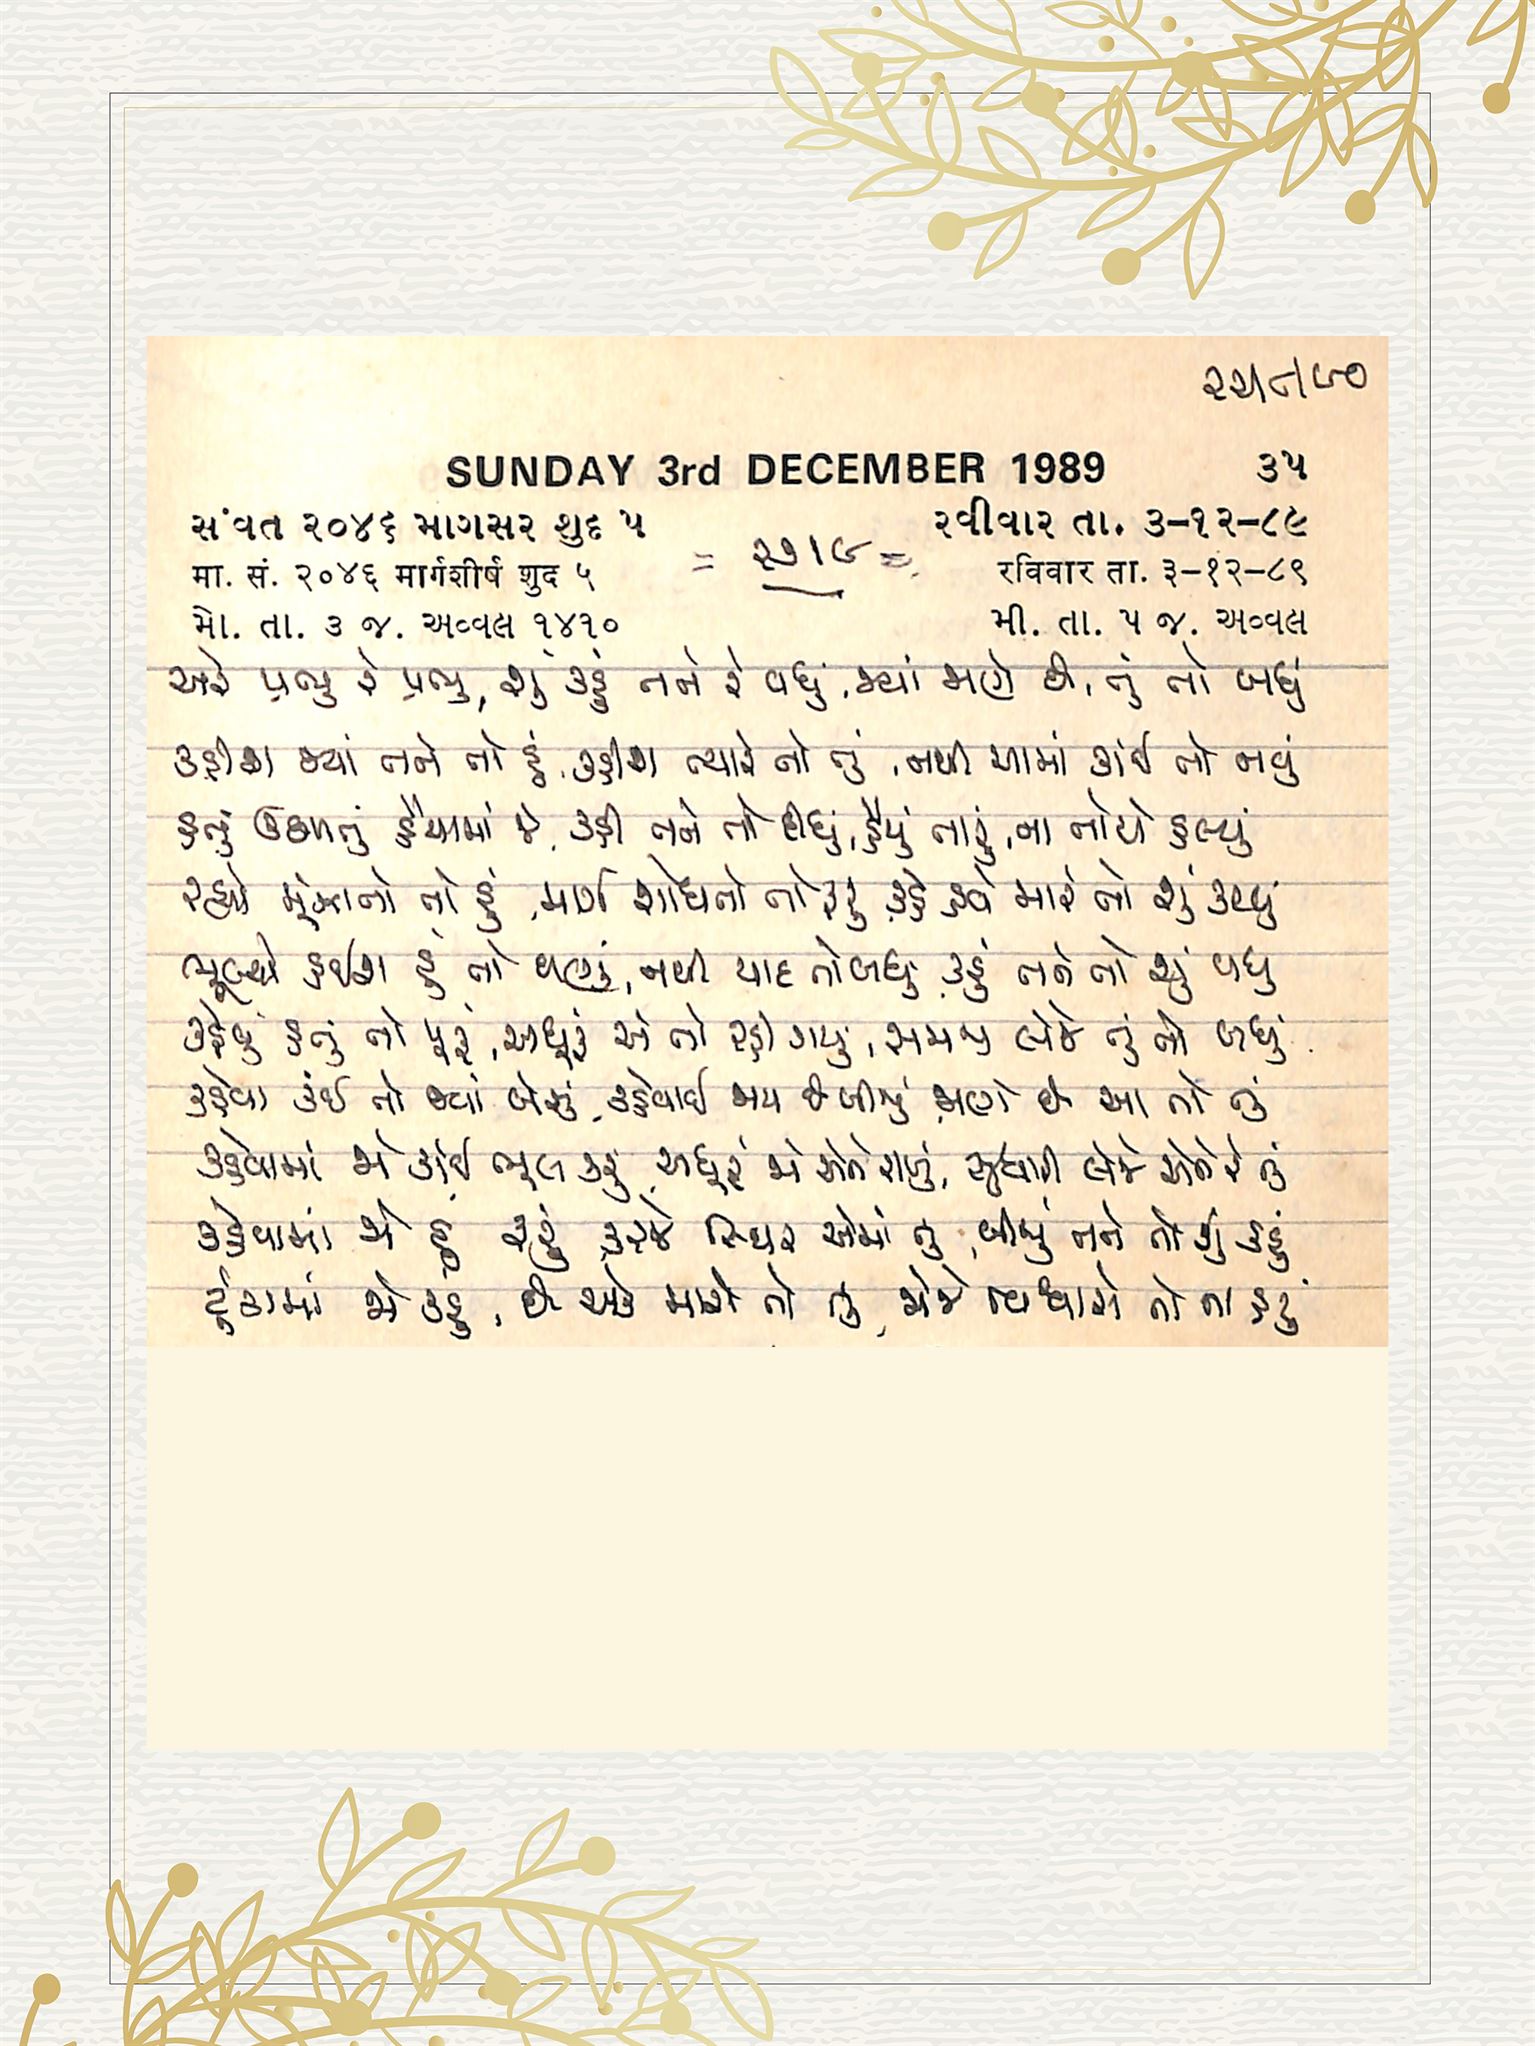 SUNDAY 3rd DECEMBER 1989 ૩૫
સંવત ૨૦૪૬ માગસર શુદ ૫ રવીવાર તા. ૩–૧૨–૮૯
मा. सं. २०४६ मार्गशीर्ष शुद ५ रविवार ता. ३–१२–८९
મો. તા. ૩ જ. અવ્વલ ૧૪૧૦ મી. તા. ૫ જ. અવ્વલ
અરે પ્રભુ રે પ્રભુ, શું કહું તને રે વધું, જ્યાં જાણે છે, તું તો બધું
કહીશ જ્યાં તને તો હું, કહીશ ત્યારે તો તું, નથી આમાં કાંઈ તો નવું
હતું ઉછળતું હૈયામાં જે, કહી તને તો દીધું, હૈયું તારું, ના તોયે હલ્યું
રહ્યો મૂંઝાતો તો હું, માર્ગ શોધતો તો ફરું, કહે હવે મારે તો શું કરવું
ભૂલ્યો હઈશ હું તો ઘણું, નથી યાદ તો બધું, કહું તને તો શું વધુ
કહેવું હતું તો પૂરું, અધૂરું એ તો રહી ગયું, સમજી લેજે તું તો બધું
કહેવા કંઈ તો જ્યાં બેસું, કહેવાઈ જાય છે બીજું, જાણે છે આ તો તું
કહેવામાં જો કાંઈ ભૂલ કરું, અધૂરું જો એને રાખું, સુધારી લેજે એને રે તું
કહેવામાં જો હું ફરું, કરજે સ્થિર એમાં તું, બીજું તને તો શું કહું
ટૂંકામાં જો કહું, છે એક મારો તો તું, જોજે ના